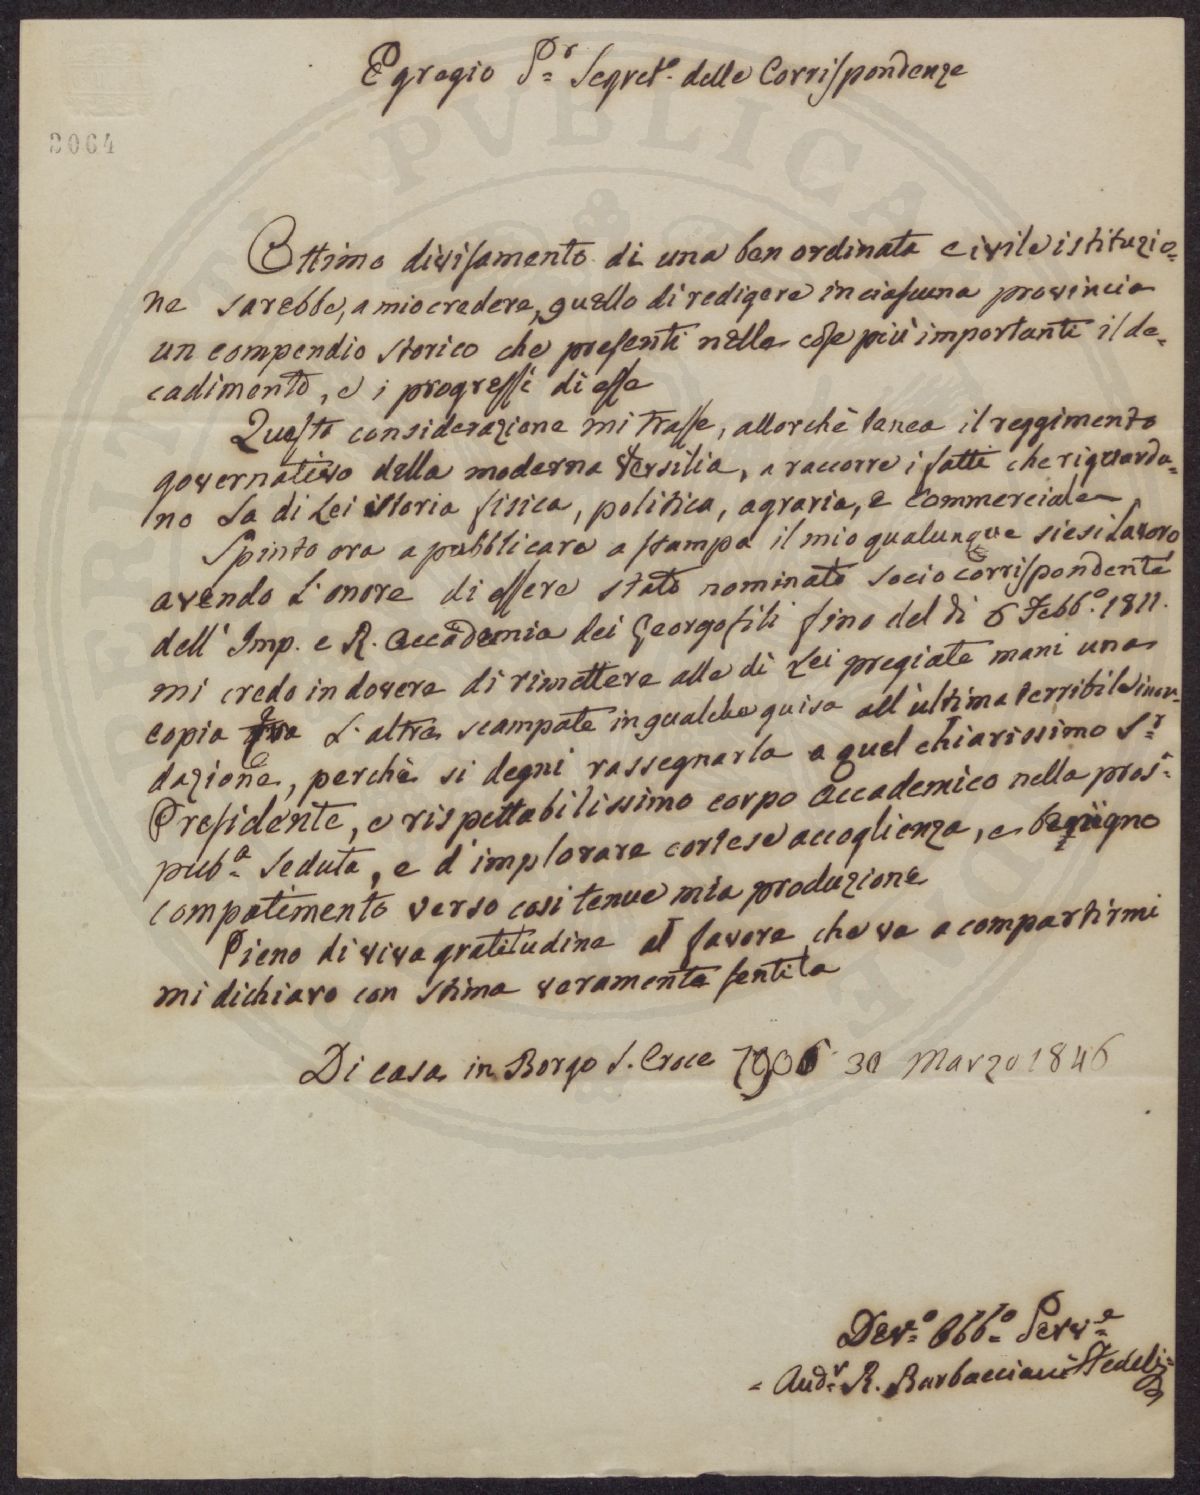 Egregio S.r Segret.o delle Corrispondenze
2064
Ottimo divisamento di una ben ordinata civile istituzio=
ne sarebbe, a mio credere, quello di redigere in ciascuna provincia
un compendio storico che presenti nelle cose più importanti il de=
cadimento, e i progressi di esse
Questa considerazione mi trasse, allorchè tenea il reggimento
governativo della moderna Versilia, a raccorre i fatti che riguarda=
no La di Lei istoria fisica, politica, agraria, e commerciale
Spinto ora a pubblicare a stampa il mio qualunque siesi Lavoro
avendo L'onore di essere stato nominato socio corrispondente
dell'Imp. e R. Accademia dei Georgofili fino del dì 6 Febb.o 1811.
mi credo in dovere di rimettere alle di Lei pregiate mani una
copia fra L'altre scampate in qualche guisa all'ultima terribile inon=
dazione, perchè si degni rassegnarla a quel chiarissimo S.r
Presidente, e rispettabilissimo corpo Accademico nella pros.a
pub.a Seduta, e d'implorare cortese accoglienza, e benigno
compatimento verso così tenue mia produzione
Pieno di viva gratitudine al favore che va a compartirmi
mi dichiaro con stima veramente sentita
Di casa in Borgo S. Croce 30 Marzo 1846
Dev.o Obb.o Serv.e
= Aud.r R. Barbacciani Fedeli=